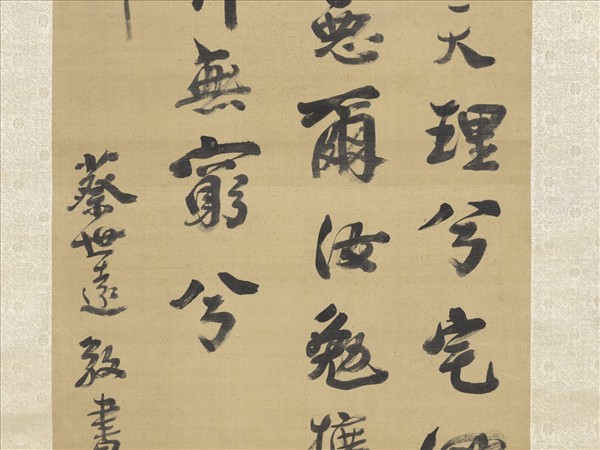 天理兮宅
惡爾汝勉擴
無窮兮
蔡世遠敬書